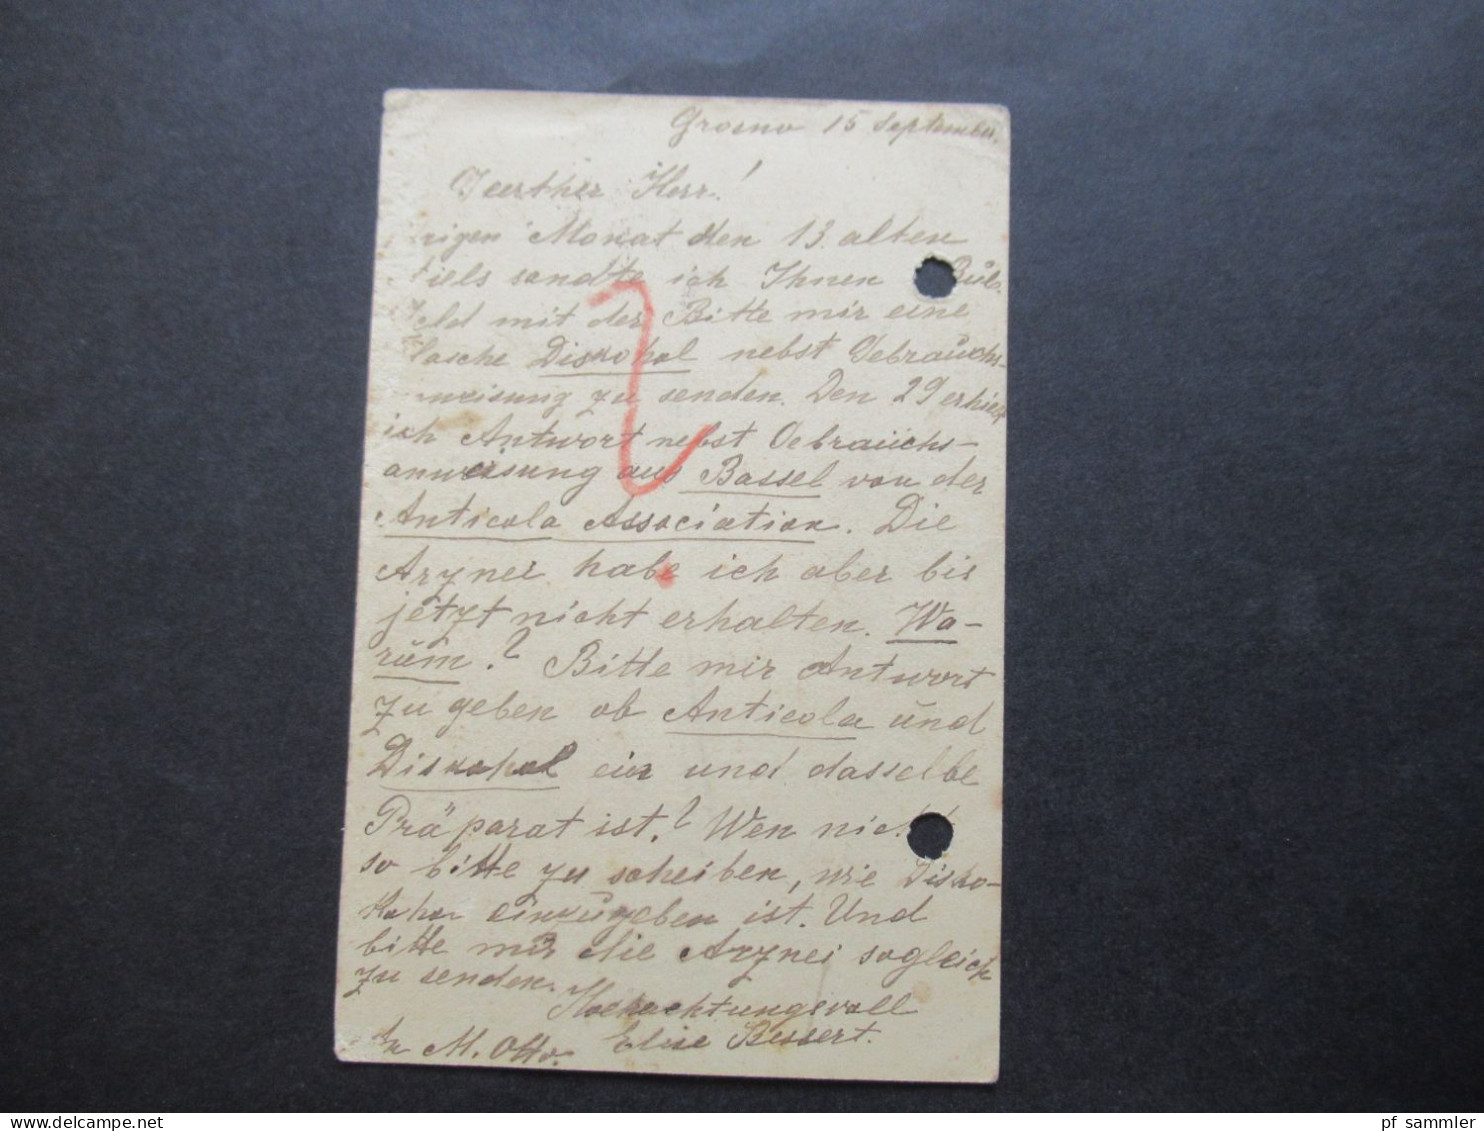 Grosno 15 September.
Werther Herr!
rigen Monat den 13. alten
tiels sandte ich Ihnen Rub.
eld mit der Bitte mir eine
lasche Diskohol nebst Gebrauchs-
weisung zu senden. Den 29 erhielt
ich Antwort nebst Gebrauchs-
anweisung aus Bassel von der
Anticola Association. Die
Arznei habe ich aber bis
jetzt nicht erhalten. Wa-
rum? Bitte mir Antwort
zu geben ob Anticola und
Diskohol ein und dasselbe
Präparat ist? Wen nicht
so bitte zu scheiben, wie Disko-
hohl einzugeben ist. Und
bitte mir die Arznei sogleich
zu senden.
Hochachtungsvoll
An M. Otto. Elise Bessert.
pf sammler
www.delcampe.net